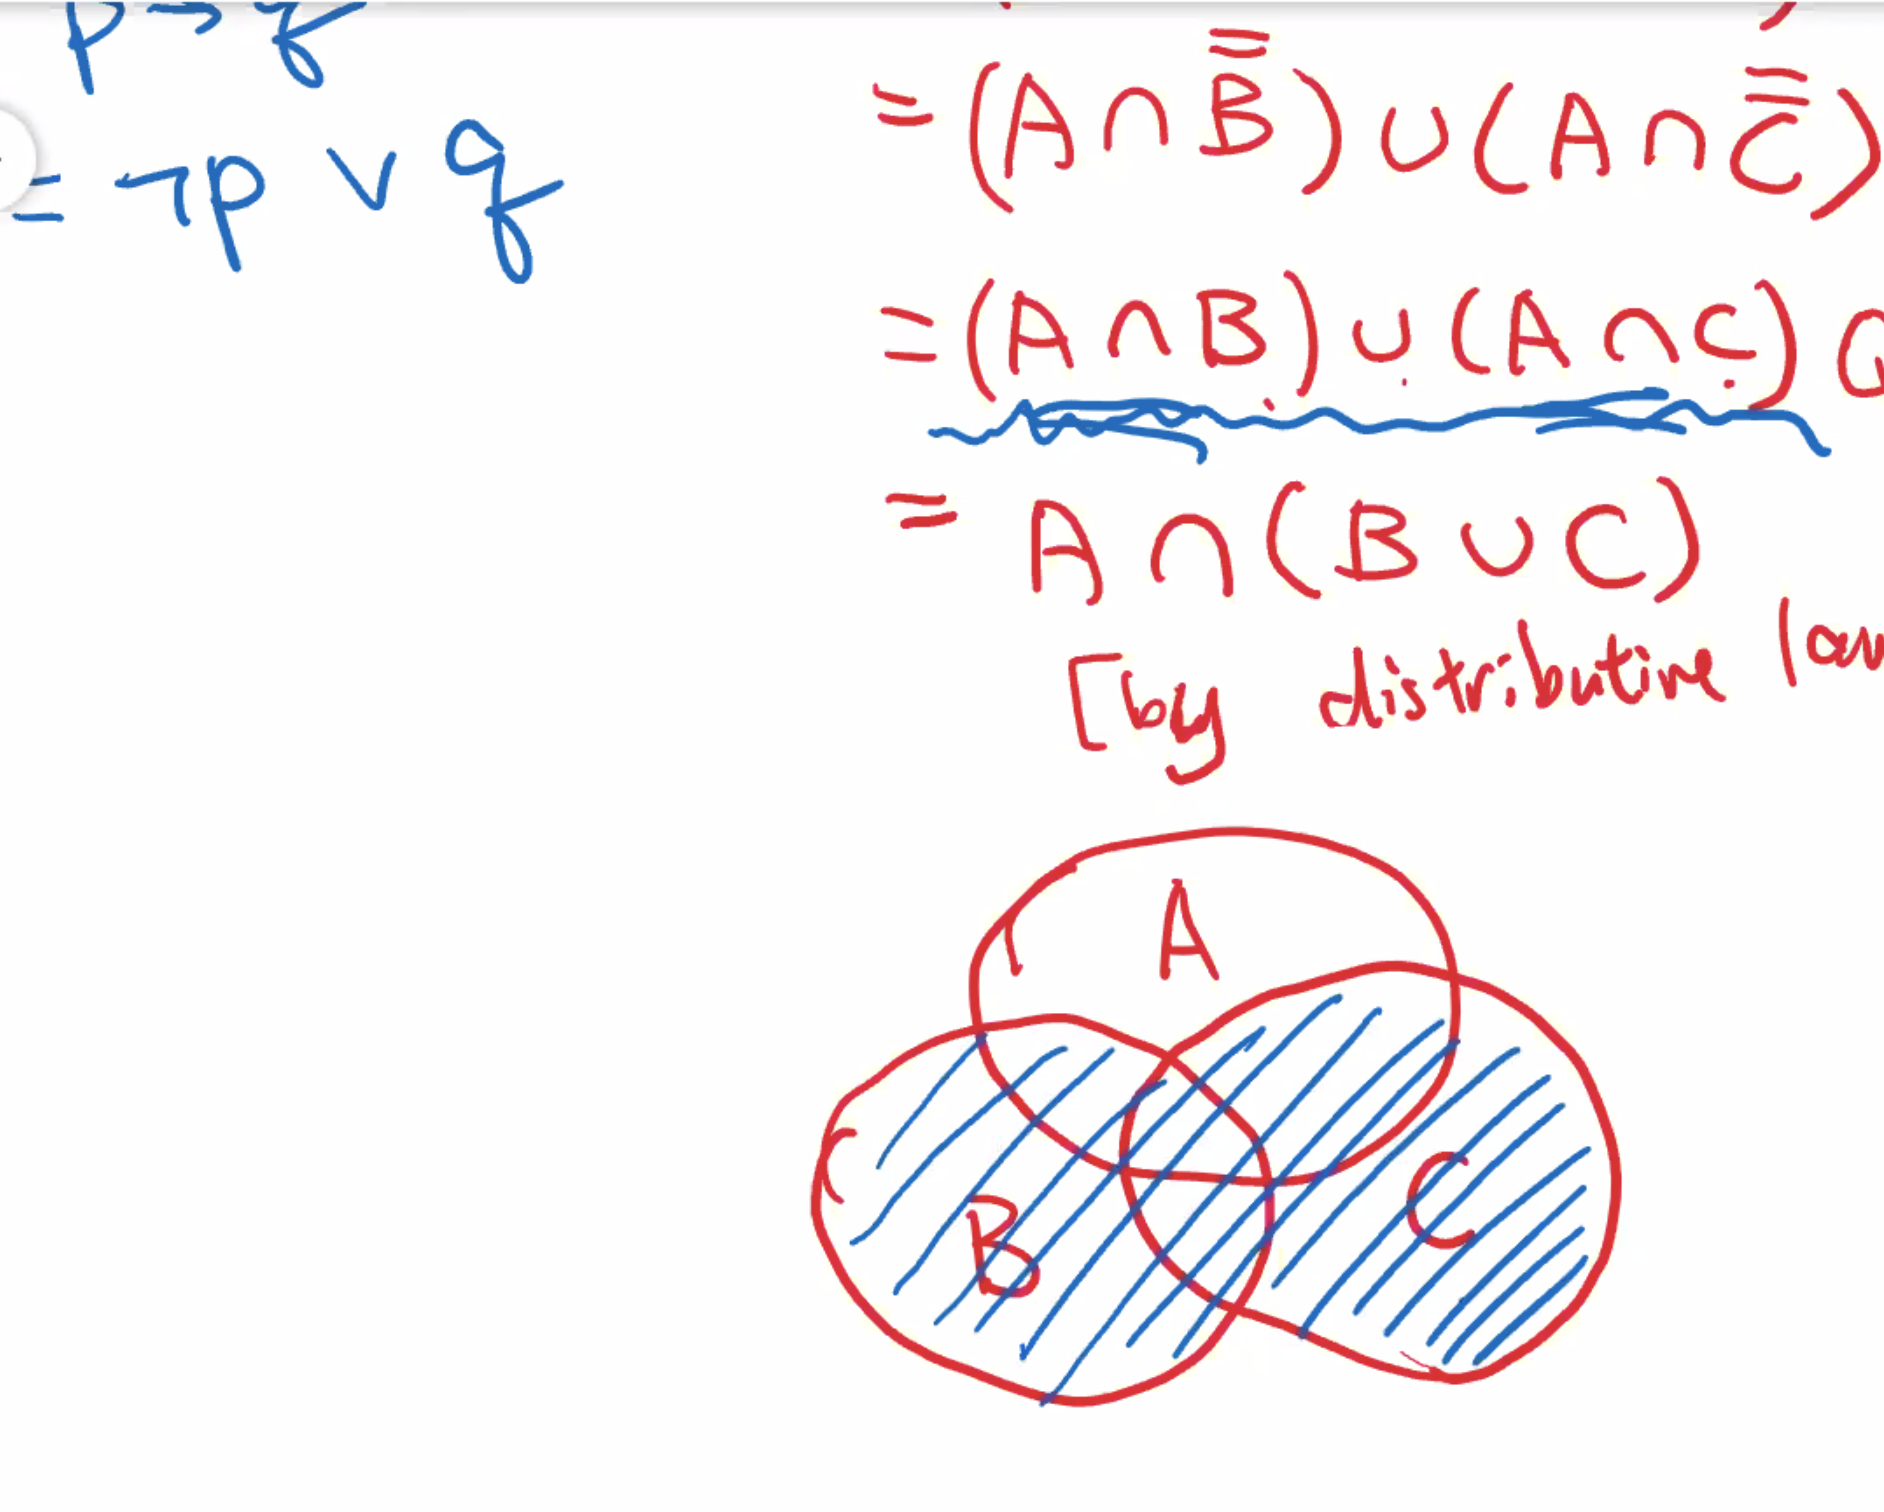 p → q
= ¬p ∨ q
= (A ∩ B̿) ∪ (A ∩ C̿)
= (A ∩ B) ∪ (A ∩ C)
= A ∩ (B ∪ C)
[by distributive law
A
B
C